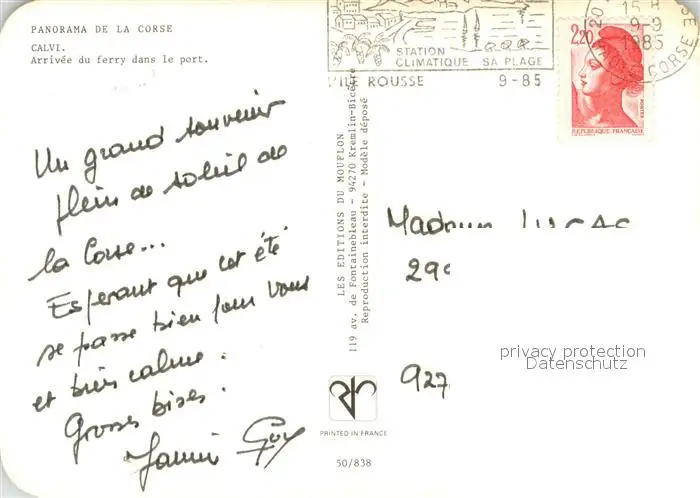 PANORAMA DE LA CORSE
CALVI.
Arrivée du ferry dans le port.
STATION
CLIMATIQUE SA PLAGE
ROUSSE 9-85
15 H
9-9
1985
CORSE
2,20
POSTES
REPUBLIQUE FRANÇAISE
Un grand souvenir
plein de soleil de
la Corse...
Esperant que cet été
se passe bien pour vous
et très calme.
Grosses bises.
Guy
LES EDITIONS DU MOUFLON
119 av. de Fontainebleau - 94270 Kremlin-Bicêtre
Reproduction interdite - Modèle déposé
PRINTED IN FRANCE
50/838
29
927
privacy protection
Datenschutz